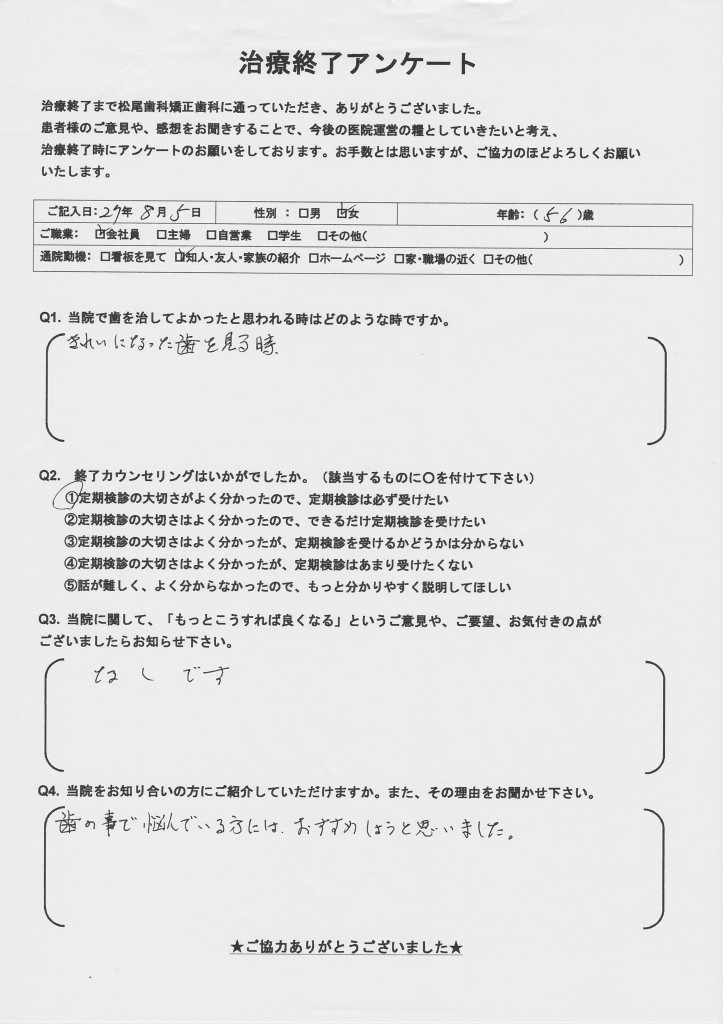 治療終了アンケート
治療終了まで松尾歯科矯正歯科に通っていただき、ありがとうございました。
患者様のご意見や、感想をお聞きすることで、今後の医院運営の糧としていきたいと考え、
治療終了時にアンケートのお願いをしております。お手数とは思いますが、ご協力のほどよろしくお願い
いたします。
ご記入日：27年 8月 5日 性別 ： □男 ☑女 年齢：（ 56 ）歳
ご職業： ☑会社員 □主婦 □自営業 □学生 □その他（ ）
通院動機： □看板を見て ☑知人・友人・家族の紹介 □ホームページ □家・職場の近く □その他（ ）
Q1. 当院で歯を治してよかったと思われる時はどのような時ですか。
きれいになった歯を見る時
Q2. 終了カウンセリングはいかがでしたか。（該当するものに〇を付けて下さい）
①定期検診の大切さがよく分かったので、定期検診は必ず受けたい
②定期検診の大切さはよく分かったので、できるだけ定期検診を受けたい
③定期検診の大切さはよく分かったが、定期検診を受けるかどうかは分からない
④定期検診の大切さはよく分かったが、定期検診はあまり受けたくない
⑤話が難しく、よく分からなかったので、もっと分かりやすく説明してほしい
Q3. 当院に関して、「もっとこうすれば良くなる」というご意見や、ご要望、お気付きの点が
ございましたらお知らせ下さい。
なしです
Q4. 当院をお知り合いの方にご紹介していただけますか。また、その理由をお聞かせ下さい。
歯の事で悩んでいる方には、おすすめしようと思いました。
★ご協力ありがとうございました★